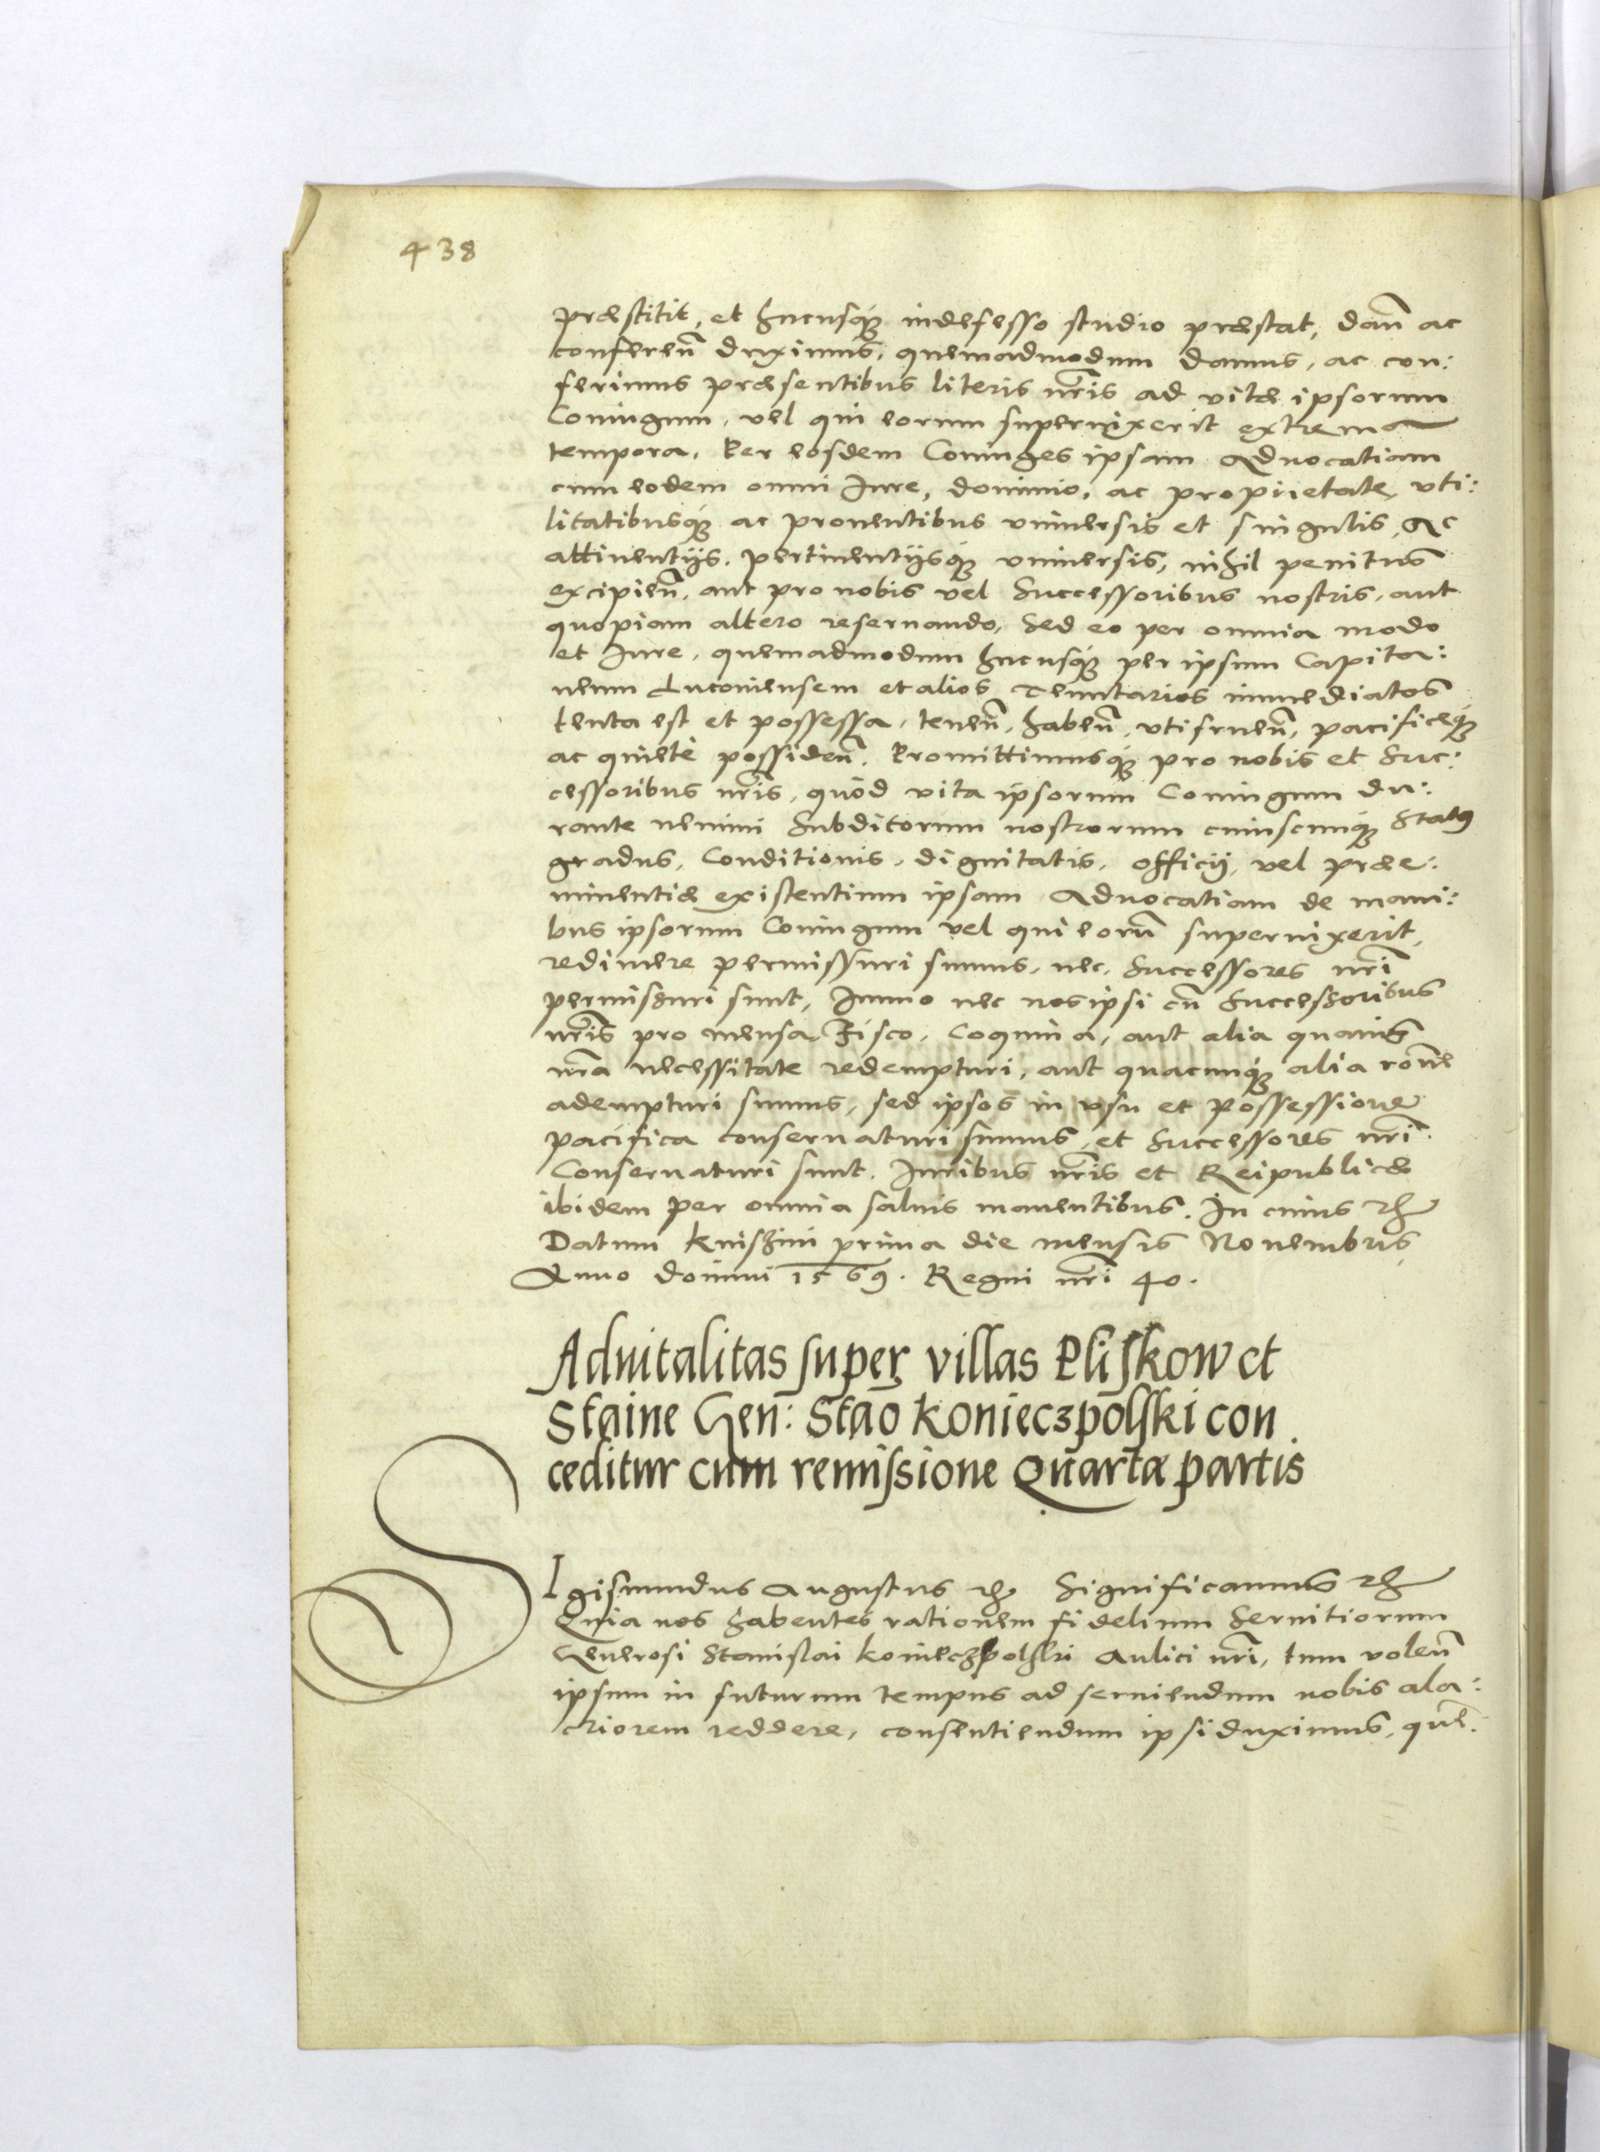 438
præstitit, et hucusq́ indefesso studio præstat, dan̄ ac
conferen̄ duximus, quemadmodum damus, ac con:
ferimus præsentibus literis nr̄is ad vitæ ipsorum
Coniugum, vel qui eorum superuixerit extrema
tempora. Per eosdem Coniuges ipsam Aduocatiam
cum eodem omni Iure, dominio, ac proprietate, vti:
litatibusq́ ac prouentibus vniuersis et singulis, Ac
attinentijs, pertinentijsq́ vniuersis, nihil penitus
excipien̄, aut pro nobis vel Successoribus nostris, aut
quopiam altero reseruando, Sed eo per omnia modo
et Iure, quemadmodum hucusq́ per ipsum Capita:
neum Lucoriensem et alios Tenutarios immediatos
tenta est et possessa, tenen̄, haben̄, vtifruen̄, pacificeq́
ac quietè possiden̄. Promittimusq́ pro nobis et Suc:
cessoribus nr̄is, quòd vita ipsorum Coniugum du:
rante nemini Subditorum nostrorum cuiuscunq́ Status
gradus, Conditionis, dignitatis, officij, vel præe:
minentiæ existentium ipsam Aduocatiam de mani:
bus ipsorum Coniugum vel qui eorū superuixerit,
redimere permissuri sumus, nec Successores nr̄i
permissuri sunt, Immo nec nos ipsi cū Successoribus
nr̄is pro mensa, Fisco, Coquina, aut alia quauis
nr̄a necessitate redempturi, aut quacunq́ alia rōne
adempturi sumus, sed ipsos in vsu et possessione
pacifica conseruaturi sumus, et Successores nr̄i
Conseruaturi sunt. Iuribus nr̄is et Reipublicæ
ibidem per omnia saluis manentibus. In cuius rei
Datum Kniszini prima die mensis Nouembris
Anno domini 1569. Regni nr̄i 40.
Aduitalitas super villas Pliskow et
Staine Gen: Stāo Konieczpolski con
ceditur cum remissione Quartæ partis
SIgismundus Augustus etc Significamus etc
Quia nos habentes rationem fidelium Seruitiorum
Generosi Stanislai Koniechpolski Aulici nr̄i, tum volen̄
ipsum in futurum tempus ad seruiendum nobis ala:
criorem reddere, consentiendum ipsi duximus, quē: